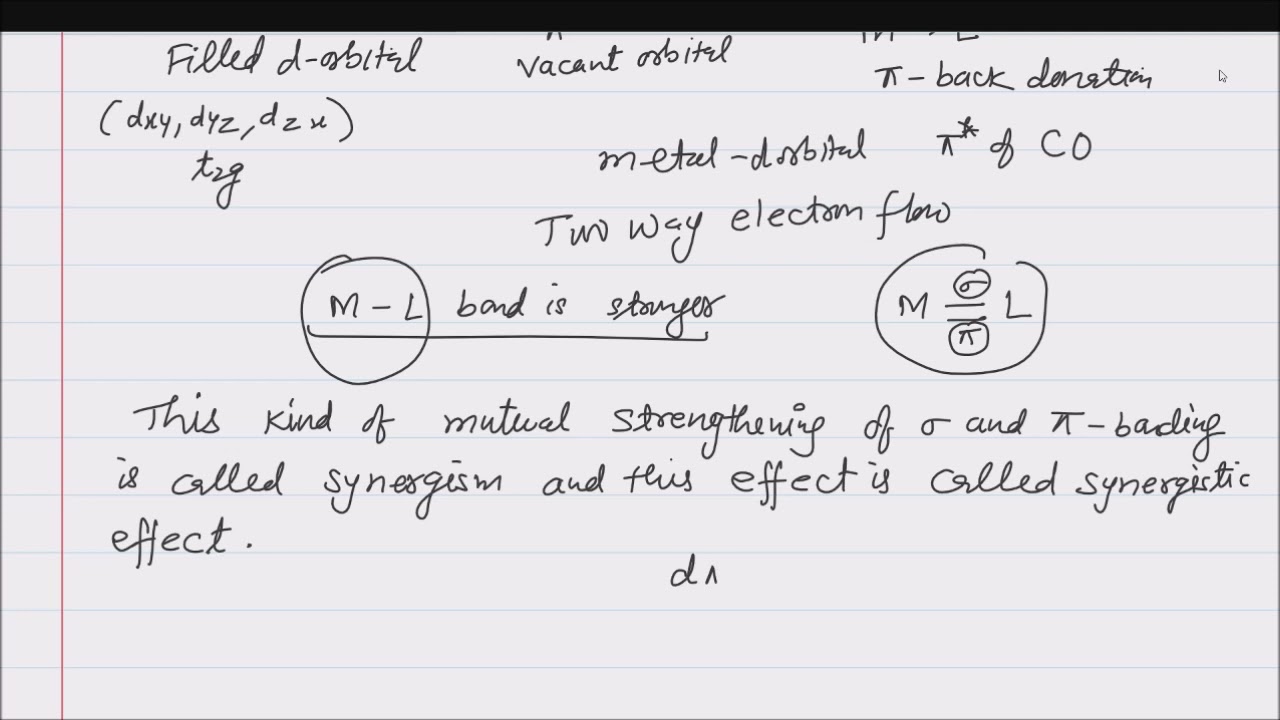 M → L
Filled d-orbital vacant orbital
π-back donation
(dxy, dyz, dzx)
metal-dorbital π* of CO
t2g
Two way electron flow
M - L bond is stronger M σ π L
This kind of mutual strengthening of σ and π-bonding
is called synergism and this effect is called synergistic
effect.
d